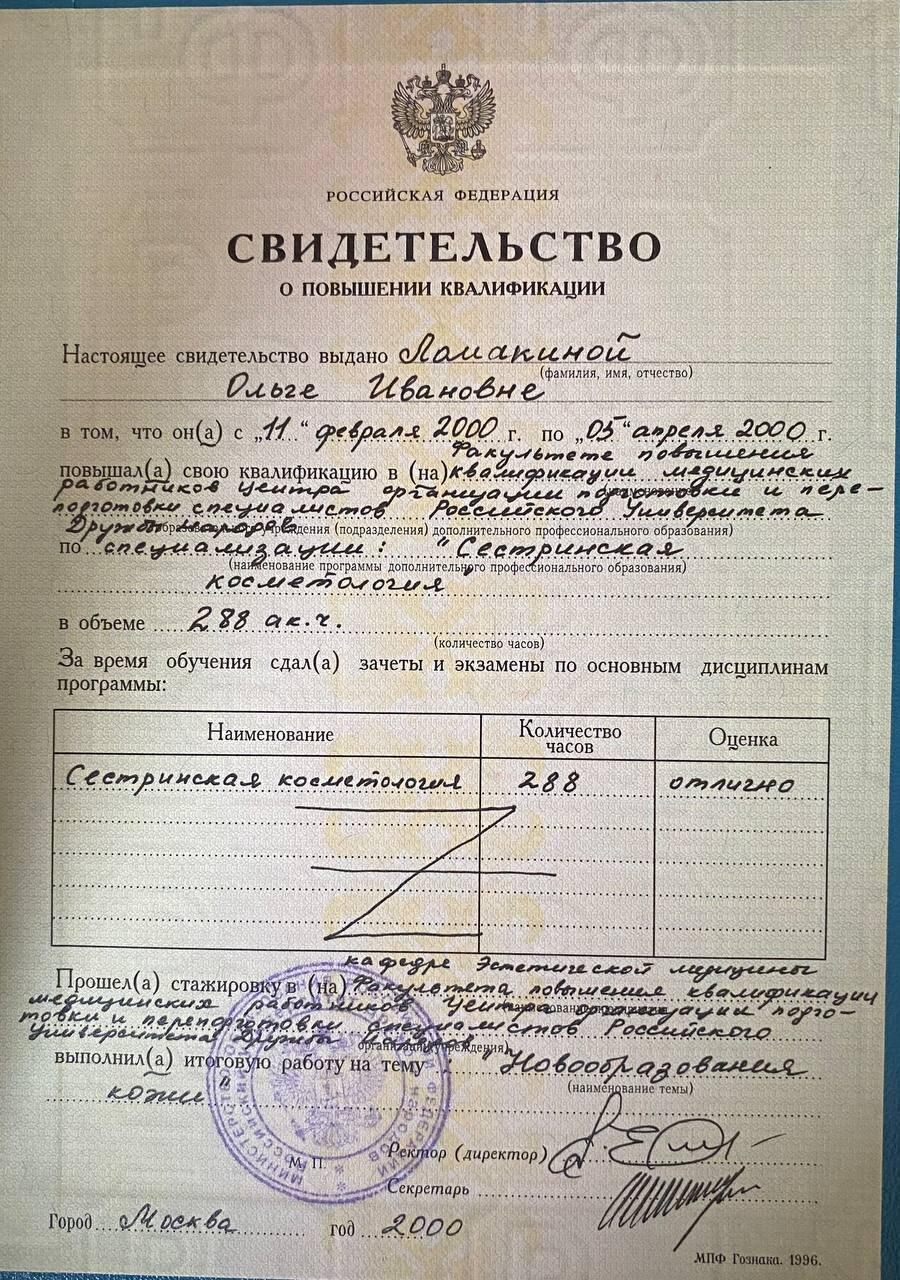 РОССИЙСКАЯ ФЕДЕРАЦИЯ
СВИДЕТЕЛЬСТВО
О ПОВЫШЕНИИ КВАЛИФИКАЦИИ
Настоящее свидетельство выдано Ломакиной
(фамилия, имя, отчество)
Ольге Ивановне
в том, что он(а) с „11“ февраля 2000 г. по „05“ апреля 2000 г.
Факультете повышения
повышал(а) свою квалификацию в (на) квалификации медицинских
работников Центра организации подготовки и пере-
подготовки специалистов Российского Университета
Дружбы народов
учреждения (подразделения) дополнительного профессионального образования)
по специализации: "Сестринская
(наименование программы дополнительного профессионального образования)
косметология"
в объеме 288 ак.ч.
(количество часов)
За время обучения сдал(а) зачеты и экзамены по основным дисциплинам
программы:
Наименование Количество часов Оценка
Сестринская косметология 288 отлично
кафедре Эстетической медицины
Прошел(а) стажировку в (на) Факультета повышения квалификации
медицинских работников Центра организации подго-
товки и переподготовки специалистов Российского
Университета Дружбы Народов
организации, учреждения)
выполнил(а) итоговую работу на тему: "Новообразования
(наименование темы)
кожи"
М. П.
Ректор (директор)
Секретарь
Город Москва год 2000
МПФ Гознака. 1996.